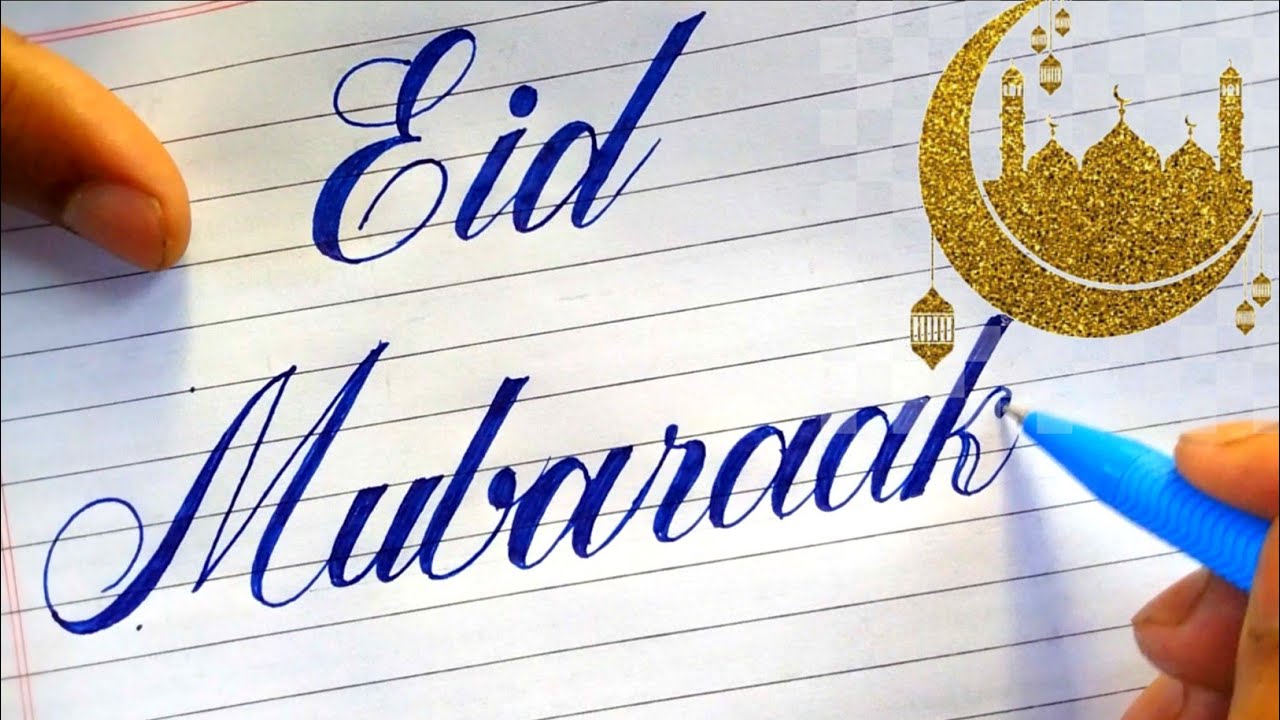 Eid
Mubaraak